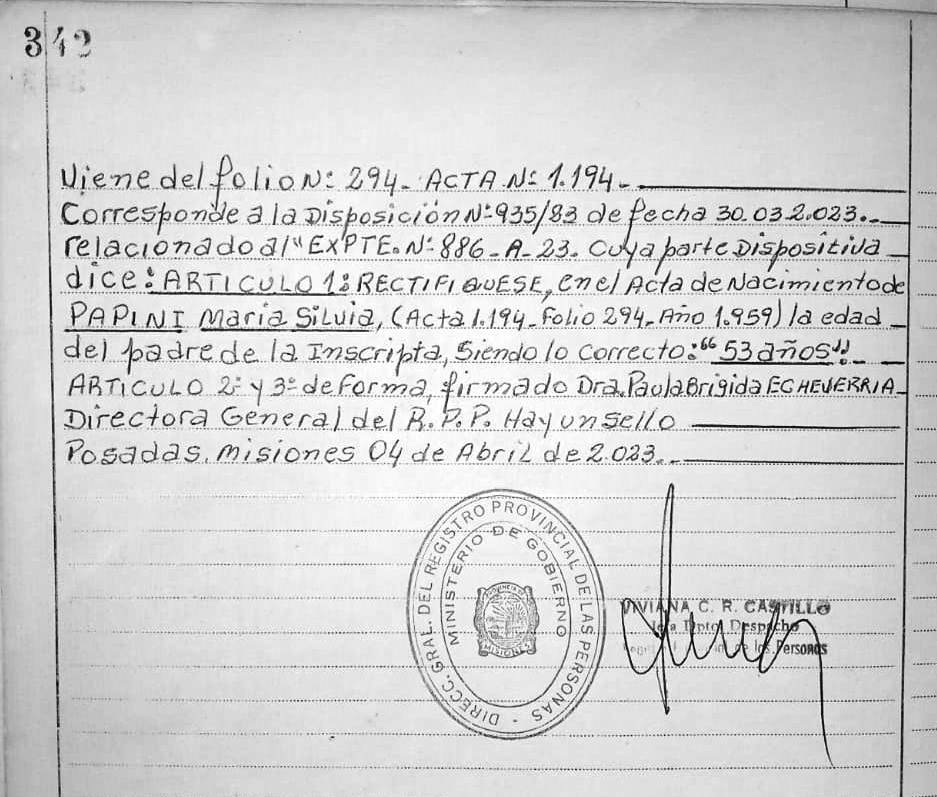 342
Viene del folio Nº 294- ACTA Nº 1.194-
Corresponde a la Disposición Nº 935/83 de fecha 30.03.2.023.-
relacionado al "EXPTE. Nº 886-A-23. Cuya parte Dispositiva
dice: ARTICULO 1º RECTIFIQUESE, en el Acta de Nacimiento de
PAPINI Maria Silvia, (Acta 1.194-Folio 294-Año 1.959) la edad
del padre de la Inscripta, Siendo lo correcto: "53 años"-
ARTICULO 2º y 3º de Forma, firmado Dra. Paula Brigida ECHEVERRIA-
Directora General del R.P.P. Hay un Sello
Posadas, Misiones 04 de Abril de 2.023.-
DIRECC. GRAL. DEL REGISTRO PROVINCIAL DE LAS PERSONAS -
MINISTERIO DE GOBIERNO
PROVINCIA DE
MISIONES
VIVIANA C. R. CASTILLO
Jefa Dpto. Despacho
de las Personas